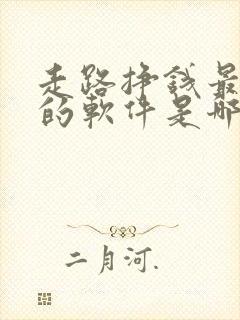 走路挣钱最
的软件是哪
二月河.